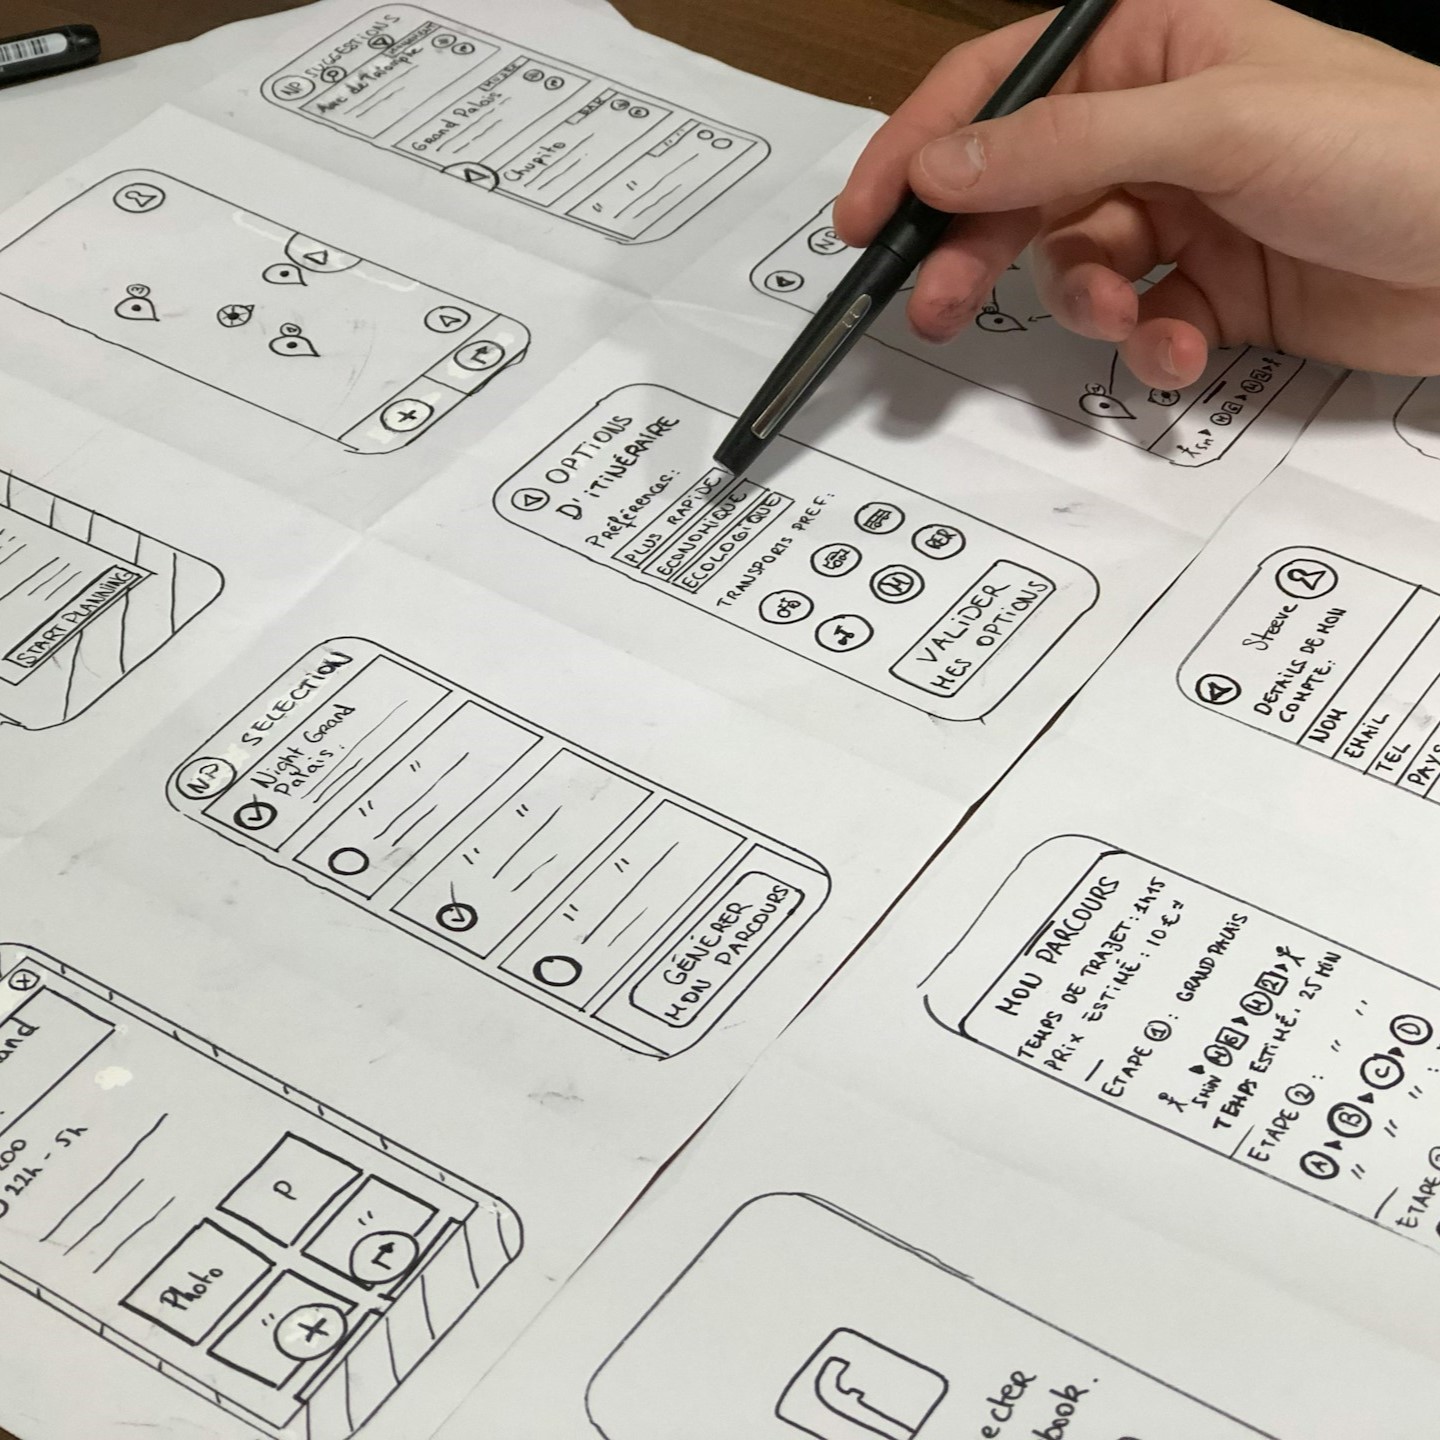 NP SUGGESTIONS
Grand Palais
Chupito
"
"
3
NP
OPTIONS
D'ITINÉRAIRE
Préférences:
PLUS RAPIDE
ECONOMIQUE
ECOLOGIQUE
TRANSPORTS PREF:
RER
M
VALIDER
MES OPTIONS
START PLANNING
NP SELECTION
Night Grand
Palais:
"
"
"
"
"
"
GÉNÉRER
MON PARCOURS
Steeve
DETAILS DE MON
COMPTE:
NOM
EMAIL
TEL
PAYS
MON PARCOURS
TEMPS DE TRAJET: 1h15
PRIX ESTIMÉ: 10€
ETAPE 1: GRAND PALAIS
5MIN M 6 M 2
TEMPS ESTIMÉ. 25 MIN
ETAPE 2: " "
A B C D
" " "
ETAPE
X
22h - 5h
P
"
Photo
"
+
f
ecter
book.